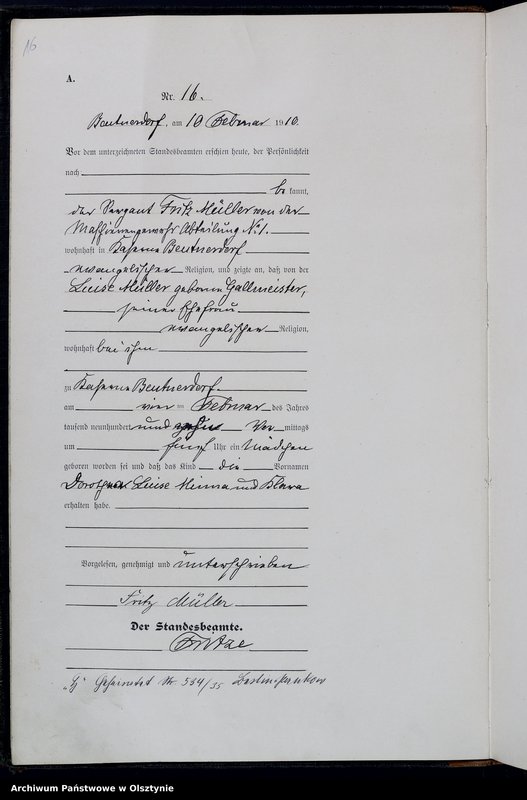 16
A.
Nr. 16.
Beutnerdorf, am 10 Februar 1910.
Vor dem unterzeichneten Standesbeamten erschien heute, der Persönlichkeit
nach
be kannt,
der Sergant Fritz Müller von der
Maschinengewehr Abteilung No. 1.
wohnhaft in Kaserne Beutnerdorf
evangelischer Religion, und zeigte an, daß von der
Luise Müller geborene Gallmeister,
seiner Ehefrau
evangelischer Religion,
wohnhaft bei ihm
zu Kaserne Beutnerdorf.
am vier ten Februar des Jahres
tausend neunhundert und zehn Vor mittags
um fünf Uhr ein Mädchen
geboren worden sei und daß das Kind die Vornamen
Dorothea Luise Minna und Klara
erhalten habe.
Vorgelesen, genehmigt und unterschrieben
Fritz Müller
Der Standesbeamte.
Fritze
Geheiratet Nr. 584/35 Berlin-Pankow
Archiwum Państwowe w Olsztynie